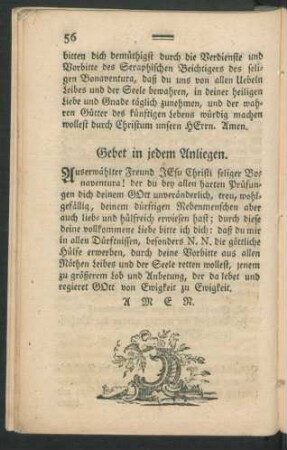 56
bitten dich demüthigst durch die Verdienste und
Vorbitte des Seraphischen Beichtigers des seli-
gen Bonaventura, daß du uns von allen Uebeln
Leibes und der Seele bewahren, in deiner heiligen
Liebe und Gnade täglich zunehmen, und der wah-
ren Gütter des künftigen Lebens würdig machen
wollest durch Christum unsern HErrn. Amen.
Gebet in jedem Anliegen.
Auserwählter Freund JEsu Christi seliger Bo-
naventura! der du bey allen harten Prüfun-
gen dich deinem GOtt unveränderlich, treu, wohl-
gefällig, deinem dürftigen Nebenmenschen aber
auch liebs und hülfreich erwiesen hast; durch diese
deine vollkommene Liebe bitte ich dich: daß du mir
in allen Dürftnissen, besonders N. N. die göttliche
Hülfe erwerben, durch deine Vorbitte aus allen
Nöthen Leibes und der Seele retten wollest, jenem
zu größerem Lob und Anbetung, der da lebet und
regieret GOtt von Ewigkeit zu Ewigkeit.
A M E N.